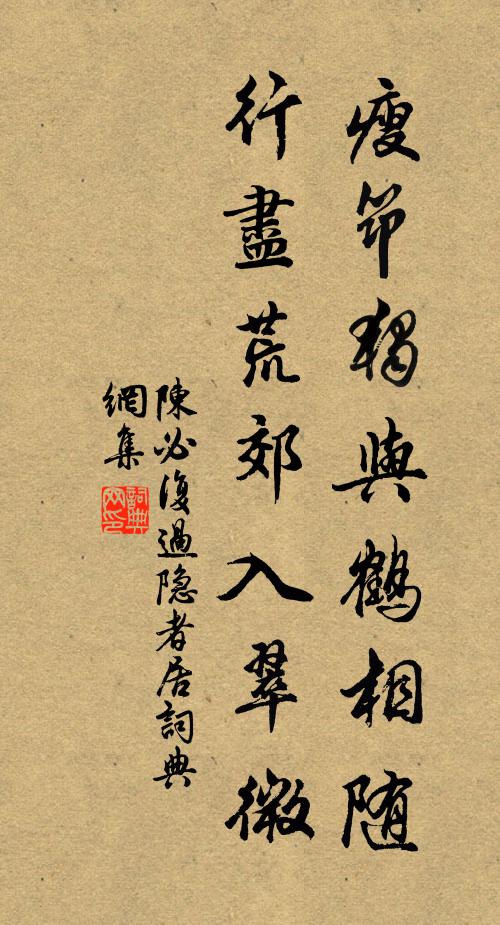 瘦笻獨與鶴相隨
行盡荒郊入翠微
陳必復過隐者居詞典
網集
詞典
网印